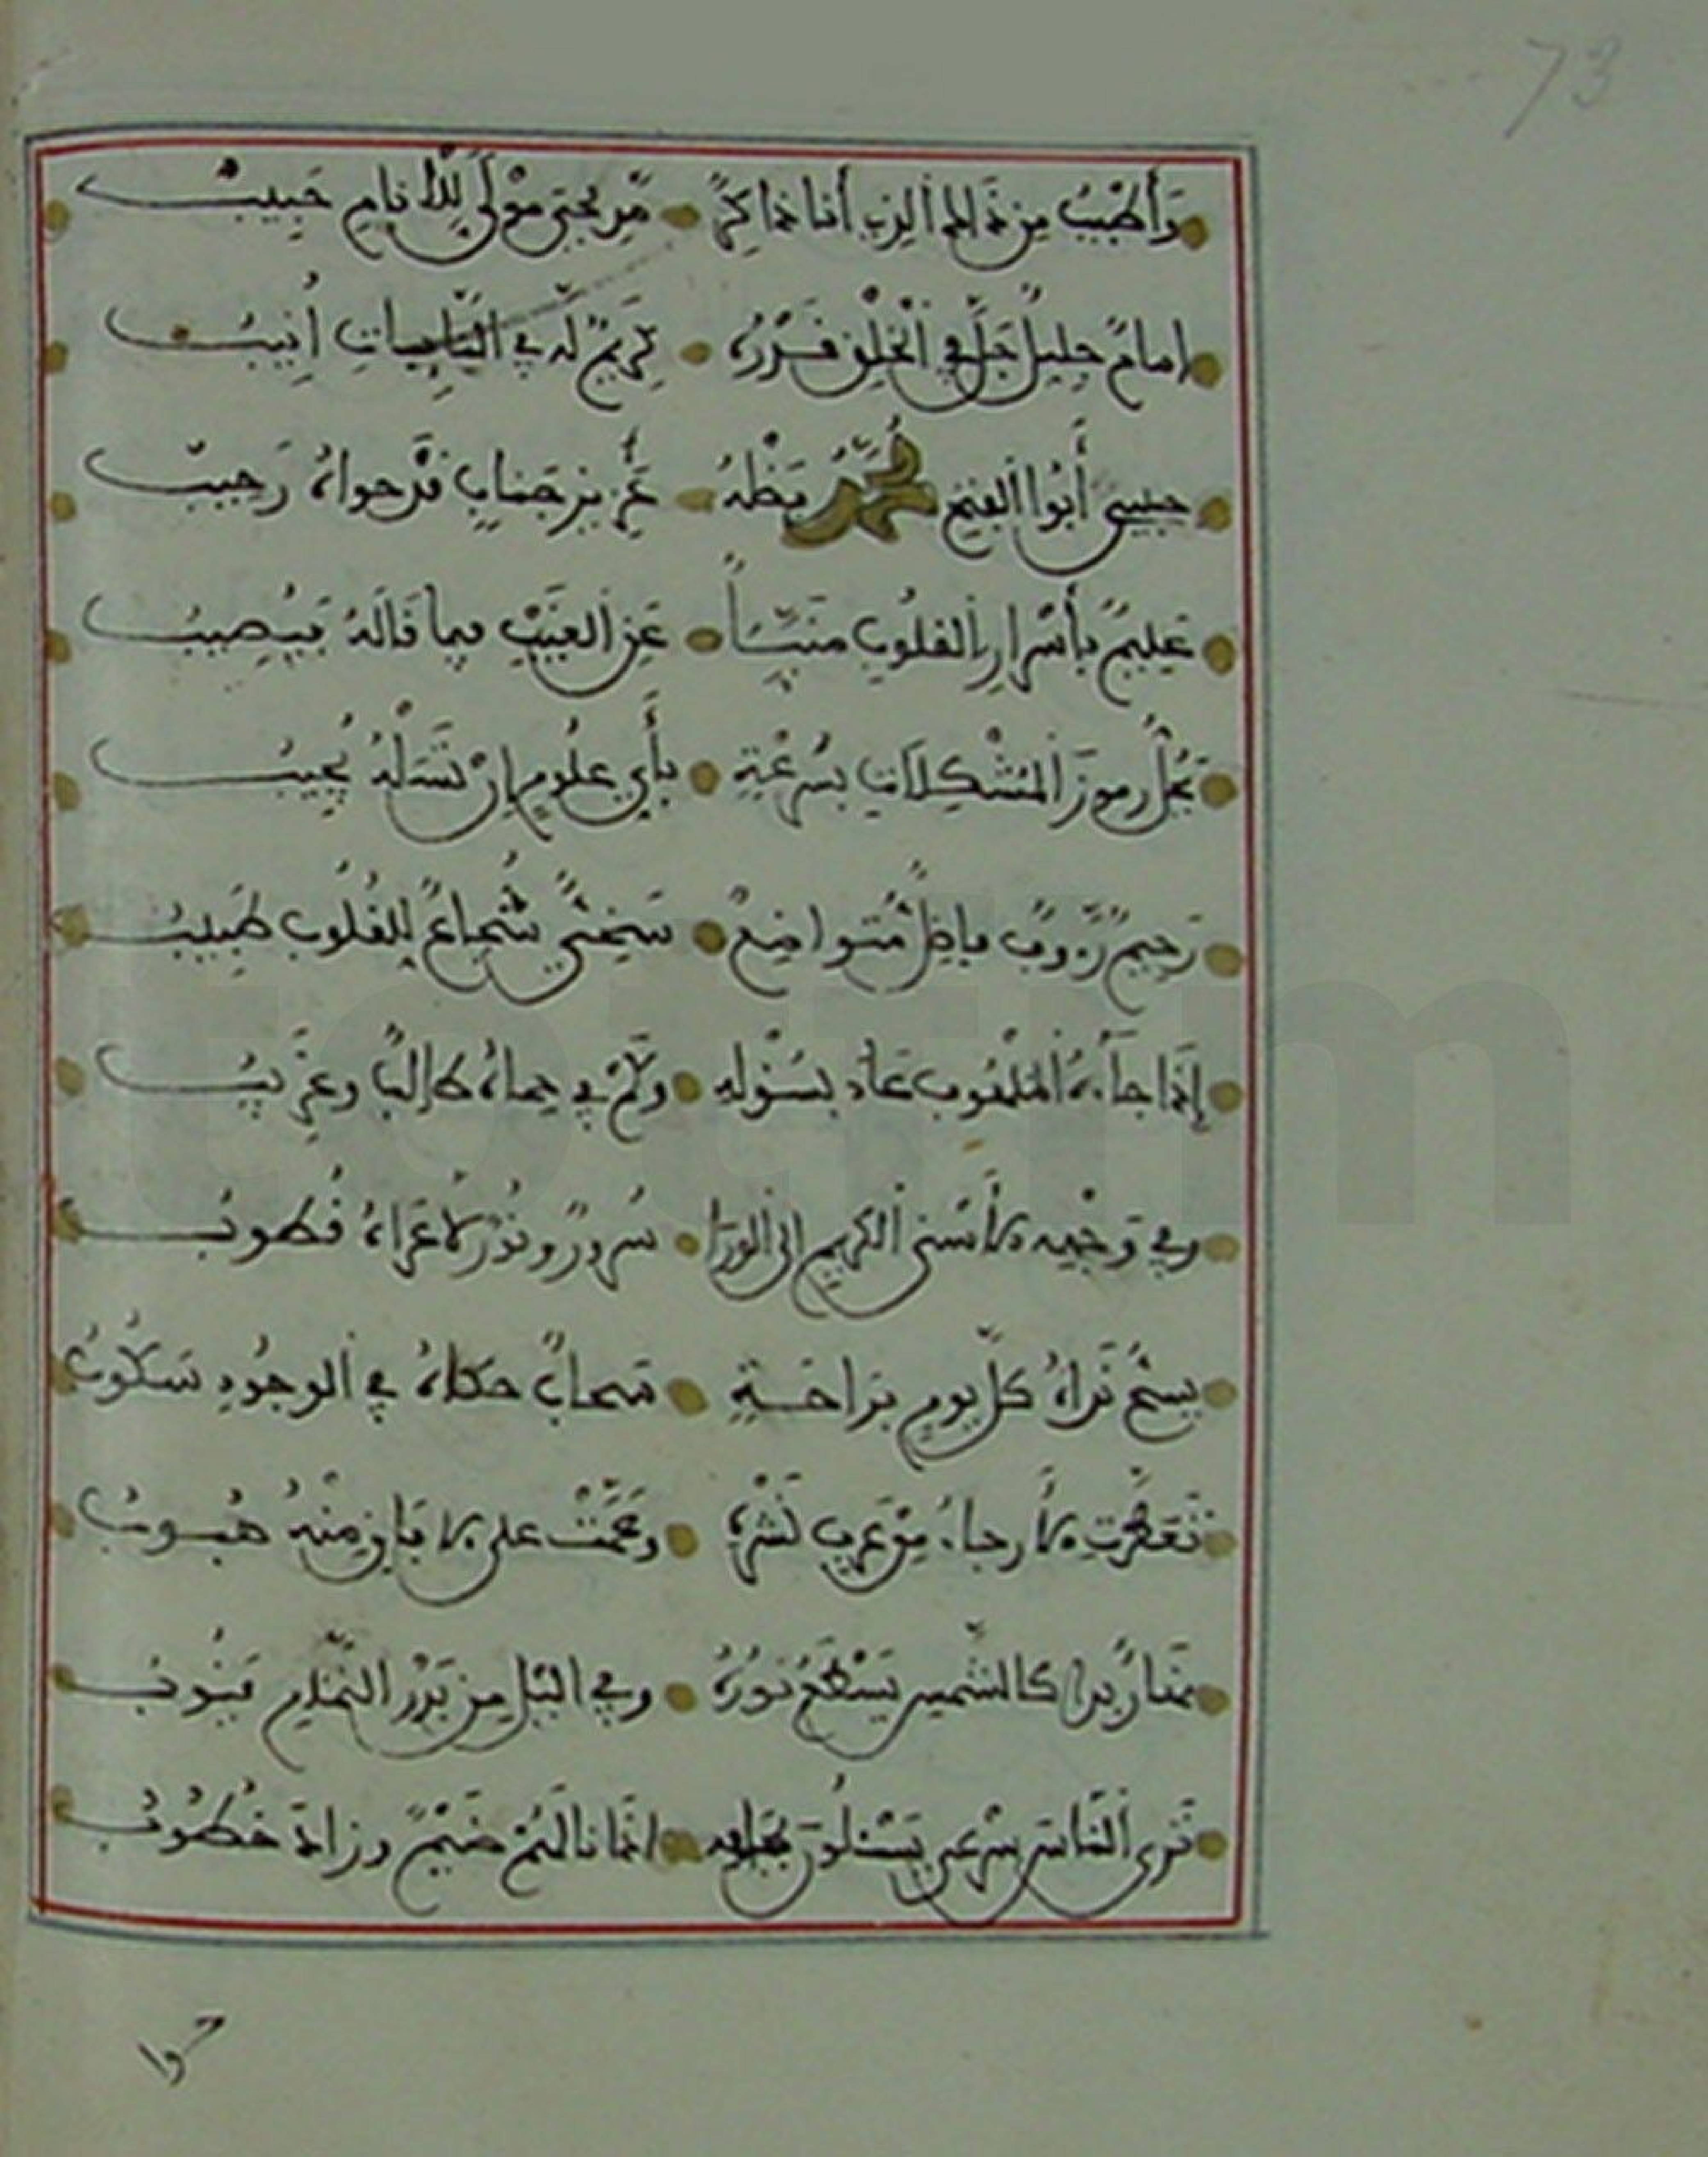 73
وَأَطْيَبُ مِن ذَالِكَ الذِي أَنَا ذَاكِرٌ مَدِيحِي مَوْلًى لِلْأَنَامِ حَبِيبُ
إمامٌ جليلٌ جَلَّ في الْخَلْقِ قَدْرُهُ كَرِيمٌ لَهُ في النَّايِبَاتِ
حبيبي أَبُوا الفيض مُحَمَّدُ عَزِيزُ جَنَابٍ قَدْ حواهُ رَحِيبُ
عَلِيمٌ بأَسْرَارِ القلُوبِ منَبِّئاً عَنِ الغَيْبِ فيما قَالَهُ فَيُصِيبُ
يَحُلُّ رموزَ المُشْكِلَاتِ بسُرْعَةٍ بأَيِّ علُومٍ إنْ تَسَلْهُ يُجِيبُ
رَحِيمٌ رَءُوفٌ فاضِلٌ مُتَواضِعٌ سَخِيٌّ شُجَاعٌ لِلقُلُوبِ طَبِيبُ
إذا جَاءَهُ المَلْهُوبُ عَادَ بسُؤْلِهِ وَكَمْ في حِمَاهُ طَالِبٌ وغَرِيبُ
وفي وَجْهِهِ الأَسْنَى الكريمِ الى الورَا سُرورٌ ونُورٌ لا عَرَاهُ قُطُوبُ
يسُحُّ نَدَاهُ كلَّ يومٍ بِرَاحَةٍ سَحابٌ حكاهُ في الوجُودِ سَكُوبُ
تَعَطَّرَتِ الأَرجاءُ مِنْ عَرْفِ نَشْرِهِ وعَمَّتْ على الآفَاقِ مِنْهُ هُبُوبُ
نَهَارٌ بدا كالشَّمسِ يَسْطَعُ نُورُهُ وفي اليْلِ مِن بَدْرِ التَّمَامِ يَنُوبُ
تَرى النَّاسَ سَرْعى يَسْئلُونَ بجاهِهِ اذا نَالَهُمْ ضَيْمٌ وزادَ خُطُوبُ
حوا